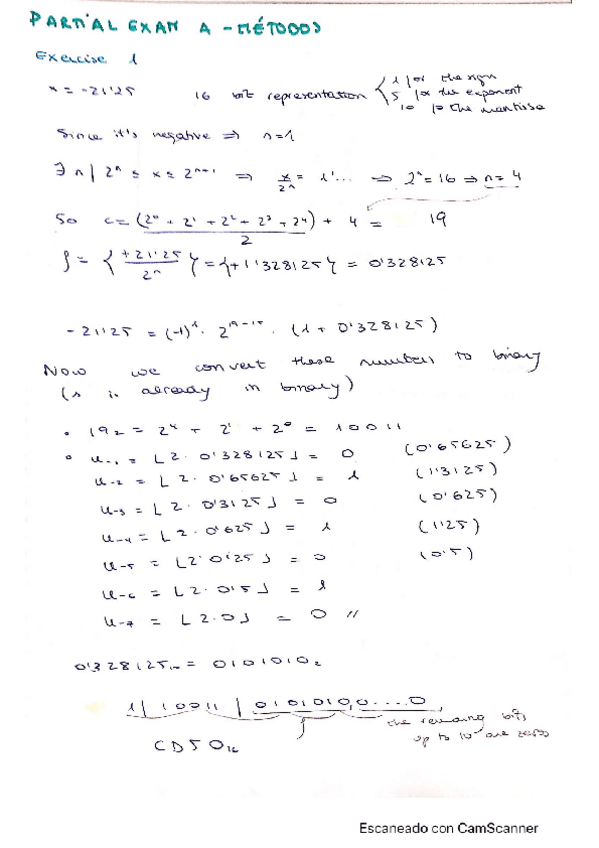 PARTIAL EXAM A - MÉTODOS
Exercise 1
x = -21'25 16 bit representation { 1 for the sign
5 for the exponent
10 for the mantissa
Since it's negative ⇒ s=1
∃ n | 2ⁿ ≤ x ≤ 2ⁿ⁺¹ ⇒ x/2ⁿ = 1'... ⇒ 2ⁿ = 16 ⇒ n = 4
So c = (2⁰ + 2¹ + 2² + 2³ + 2⁴)/2 + 4 = 19
f = {+21'25/2ⁿ} = {+1'328125} = 0'328125
-21'25 = (-1)¹ · 2¹⁹⁻¹⁵ · (1 + 0'328125)
Now we convert these numbers to binary
(s is already in binary)
• 19₂ = 2⁴ + 2¹ + 2⁰ = 10011
• u₋₁ = ⌊2 · 0'328125⌋ = 0 (0'65625)
u₋₂ = ⌊2 · 0'65625⌋ = 1 (1'3125)
u₋₃ = ⌊2 · 0'3125⌋ = 0 (0'625)
u₋₄ = ⌊2 · 0'625⌋ = 1 (1'25)
u₋₅ = ⌊2 · 0'25⌋ = 0 (0'5)
u₋₆ = ⌊2 · 0'5⌋ = 1
u₋₇ = ⌊2 · 0⌋ = 0 //
0'328125₁₀ = 0101010₂
1 | 10011 | 0101010,0....0
f the remaining bits
up to 10 are zeros
CD50₁₆
Escaneado con CamScanner